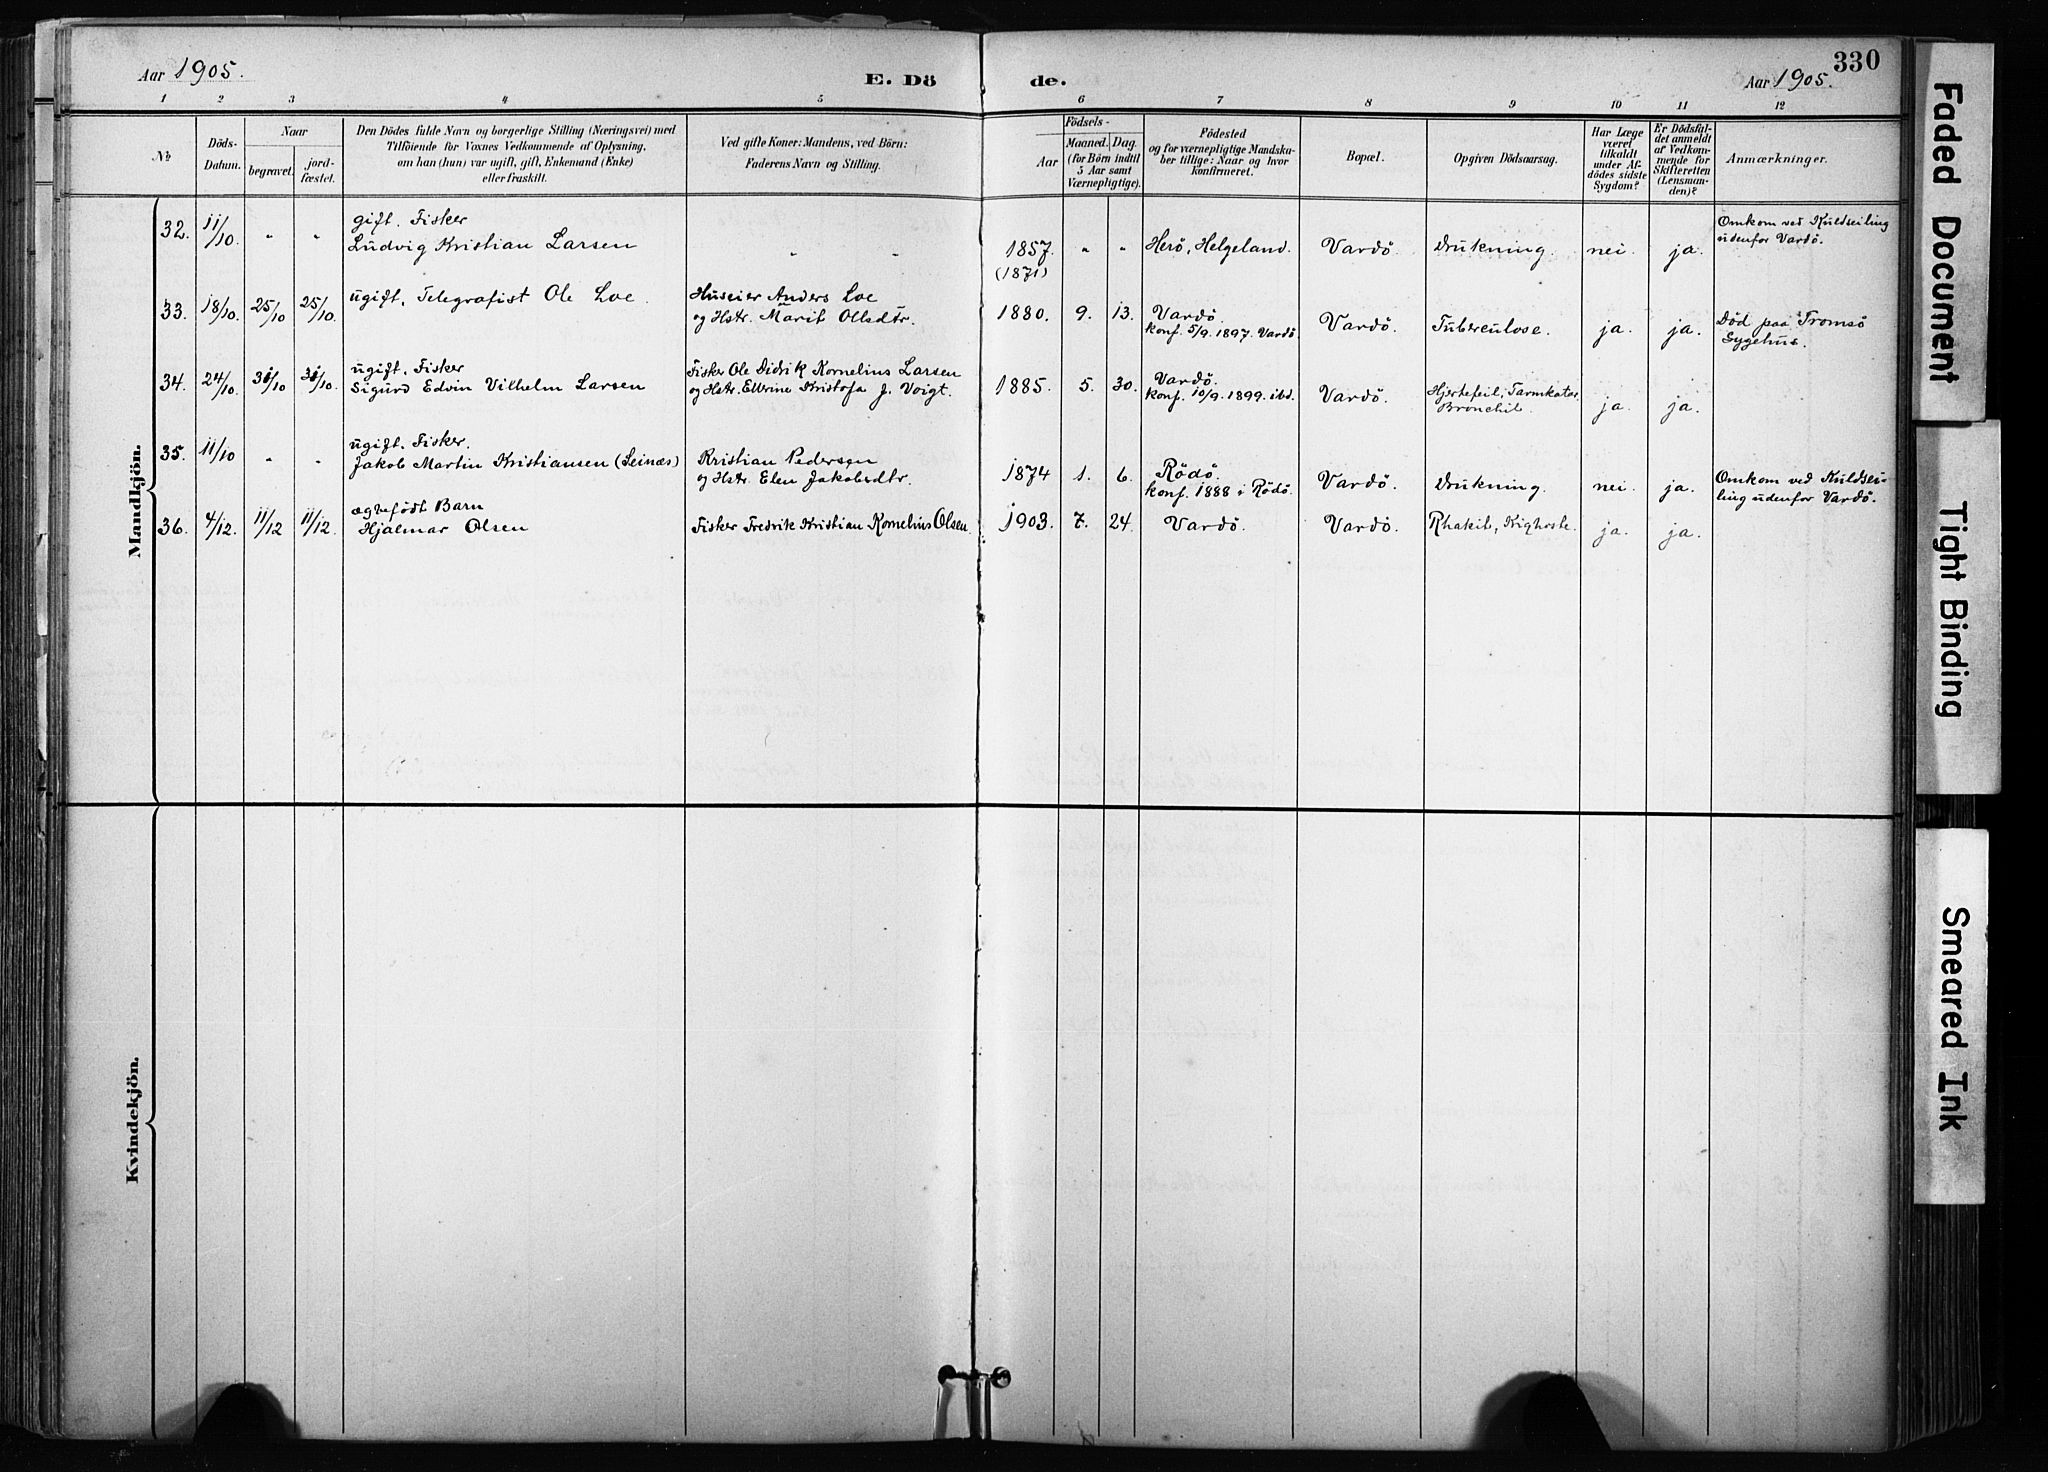 Aar 1905.
E. Dö de.
Aar 1905.
330
1 2 3 4 5 6 7 8 9 10 11 12
No
Döds-
Datum.
Naar
begravet.
jord-
fæstet.
Den Dödes fulde Navn og borgerlige Stilling (Næringsvei) med
Tilföiende for Voxnes Vedkommende af Oplysning,
om han (hun) var ugift, gift, Enkemand (Enke)
eller fraskilt.
Ved gifte Koner: Mandens, ved Börn:
Faderens Navn og Stilling.
Födsels-
Aar
Maaned.
Dag.
(for Börn indtil
5 Aar samt
Værnepligtige).
Födested
og for værnepligtige Mandska-
ber tillige: Naar og hvor
konfirmeret.
Bopæl.
Opgiven Dödsaarsag.
Har Læge
været
tilkaldt
under Af-
dödes sidste
Sygdom?
Er Dödsfal-
det anmeldt
af Vedkom-
mende for
Skifteretten
(Lensman-
den)?
Anmærkninger.
Mandkjön.
32. 11/10. " " gift. Fisker
Ludvig Kristian Larsen " " 1857. " " Herö, Helgeland. Vardö. Drukning. nei. ja. Omkom ved Kuldseiling
udenfor Vardö.
(1871)
33. 18/10. 25/10 25/10. ugift. Telegrafist Ole Loe. Huseier Anders Loe
og Hstr. Marit Ollsdtr. 1880. 9. 13. Vardö.
konf. 5/9. 1897. Vardö. Vardö. Tuberculose. ja. ja. Död paa Tromsö
Sygehus.
34. 24/10. 31/10 31/10. ugift. Fisker
Sigurd Edvin Vilhelm Larsen Fisker Ole Didrik Kornelius Larsen
og Hstr. Ellerine Kristofa J. Voigt. 1885. 5. 30. Vardö.
konf. 10/9. 1899. ibd. Vardö. Hjertefeil, Tarmkatar
Bronchit. ja. ja.
35. 11/10 " " ugift. Fisker.
Jakob Martin Kristiansen (Seinæs) Kristian Pedersen
og Hstr. Elen Jakobsdtr. 1874 1. 6. Rödö.
konf. 1888 i Rödö. Vardö. Drukning. nei. ja. Omkom ved Kuldsei-
ling udenfor Vardö.
36. 4/12. 11/12 11/12. ægtefödt Barn
Hjalmar Olsen Fisker Fredrik Kristian Kornelius Olsen. 1903. 7. 24. Vardö. Vardö. Rhakit, Kighoste. ja. ja.
Kvindekjön.
Faded Document
Tight Binding
Smeared Ink